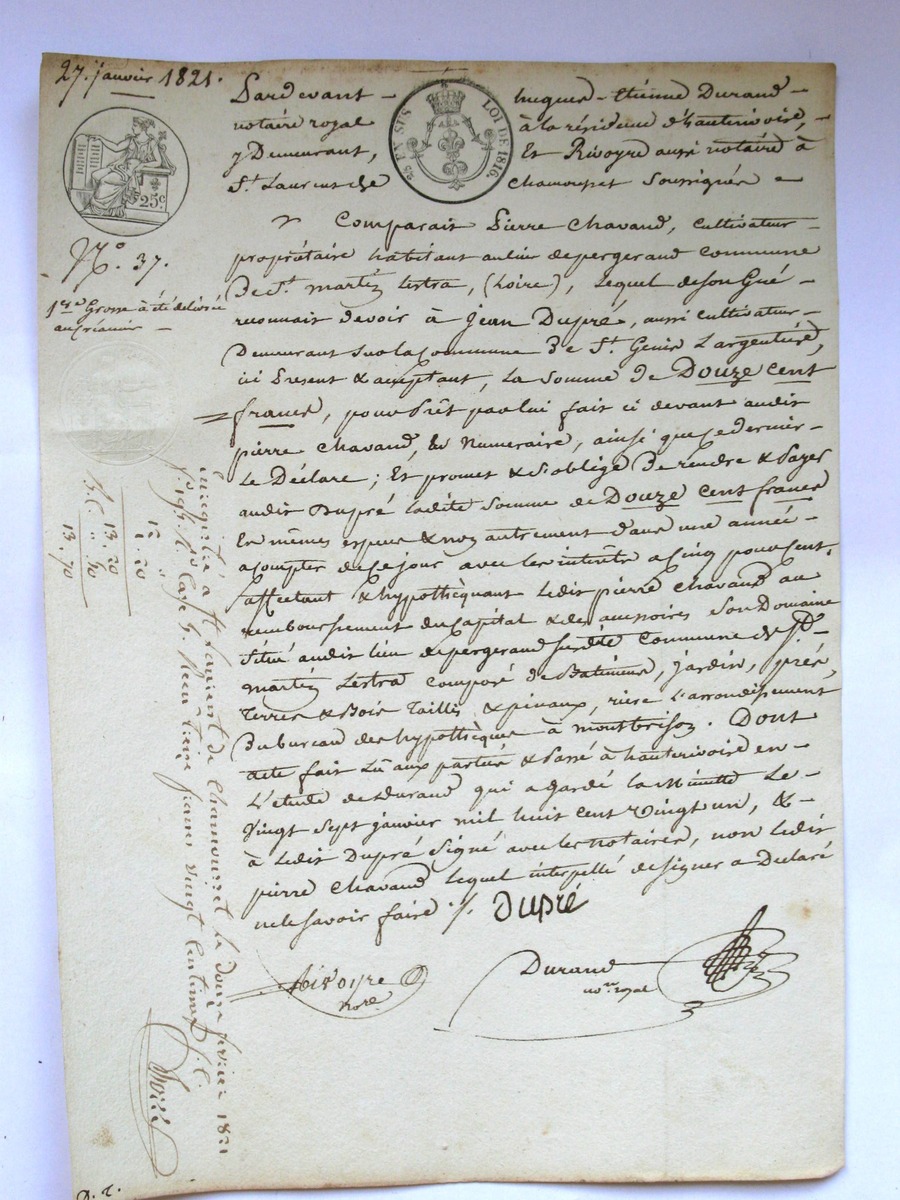 27. janvier 1821.
Pardevant - hugues - Etienne Durand -
notaire royal à la résidence d'hauterivoire, -
y Demeurant, Et Rivoyre aussi notaire à
St. Laurent de Chamousset Soussignés =
25 EN SUS
LOI DE 1816.
25c.
N.o 37.
1ere Grosse à été délivrée
au créancier -
Comparait Pierre Chavand, cultivateur -
propriétaire habitant au lieu de pergerand commune
De St. martin Lestra, (Loire), Lequel de son Gré -
reconnait devoir à Jean Dupré, aussi cultivateur -
Demeurant sur la Commune De St. Genis L'argentière,
ici Présent & acceptant, La Somme De Douze cent
francs, pour Prêt par lui fait ci devant audit
pierre Chavand, En Numeraire, ainsi que ce dernier -
Le Déclare ; Et promet & s'oblige De rendre & Payer
audit Dupré Ladite Somme de Douze Cent francs
En mêmes especes & non autrement dans une année -
a compter de ce jour avec les intérêts a cinq pour cent,
affectant & hypothèquant Ledit pierre Chavand au
remboursement du Capital & des accessoires Son Domaine
Situé audit Lieu de pergerand susdite Commune de St. -
martin Lestra composé de Batiments, jardin, près,
Terres & Bois Taillis & pinaux, rière L'arrondissement
Du bureau des hypothèques à montbrison. Dont
acte fait Lû aux parties & Passé à hauterivoire en -
L'etude de Durand qui a gardé la Minutte Le -
Vingt Sept janvier mil huit cent Vingt un, & -
à Ledit Dupré Signé avec les notaires, non Ledit
pierre Chavand Lequel interpellé de signer a Déclaré
ne le savoir faire ./.
Dupré
Rivoyre
no.re
Durand
no.re royal
Enregistré à St. Laurent de Chamousset le douze février 1821
f.o 194 R.o Case 5. Reçu treize francs vingt centimes S. C.
12. "
1. 20
13. 20
" 50
13. 70
D. r.